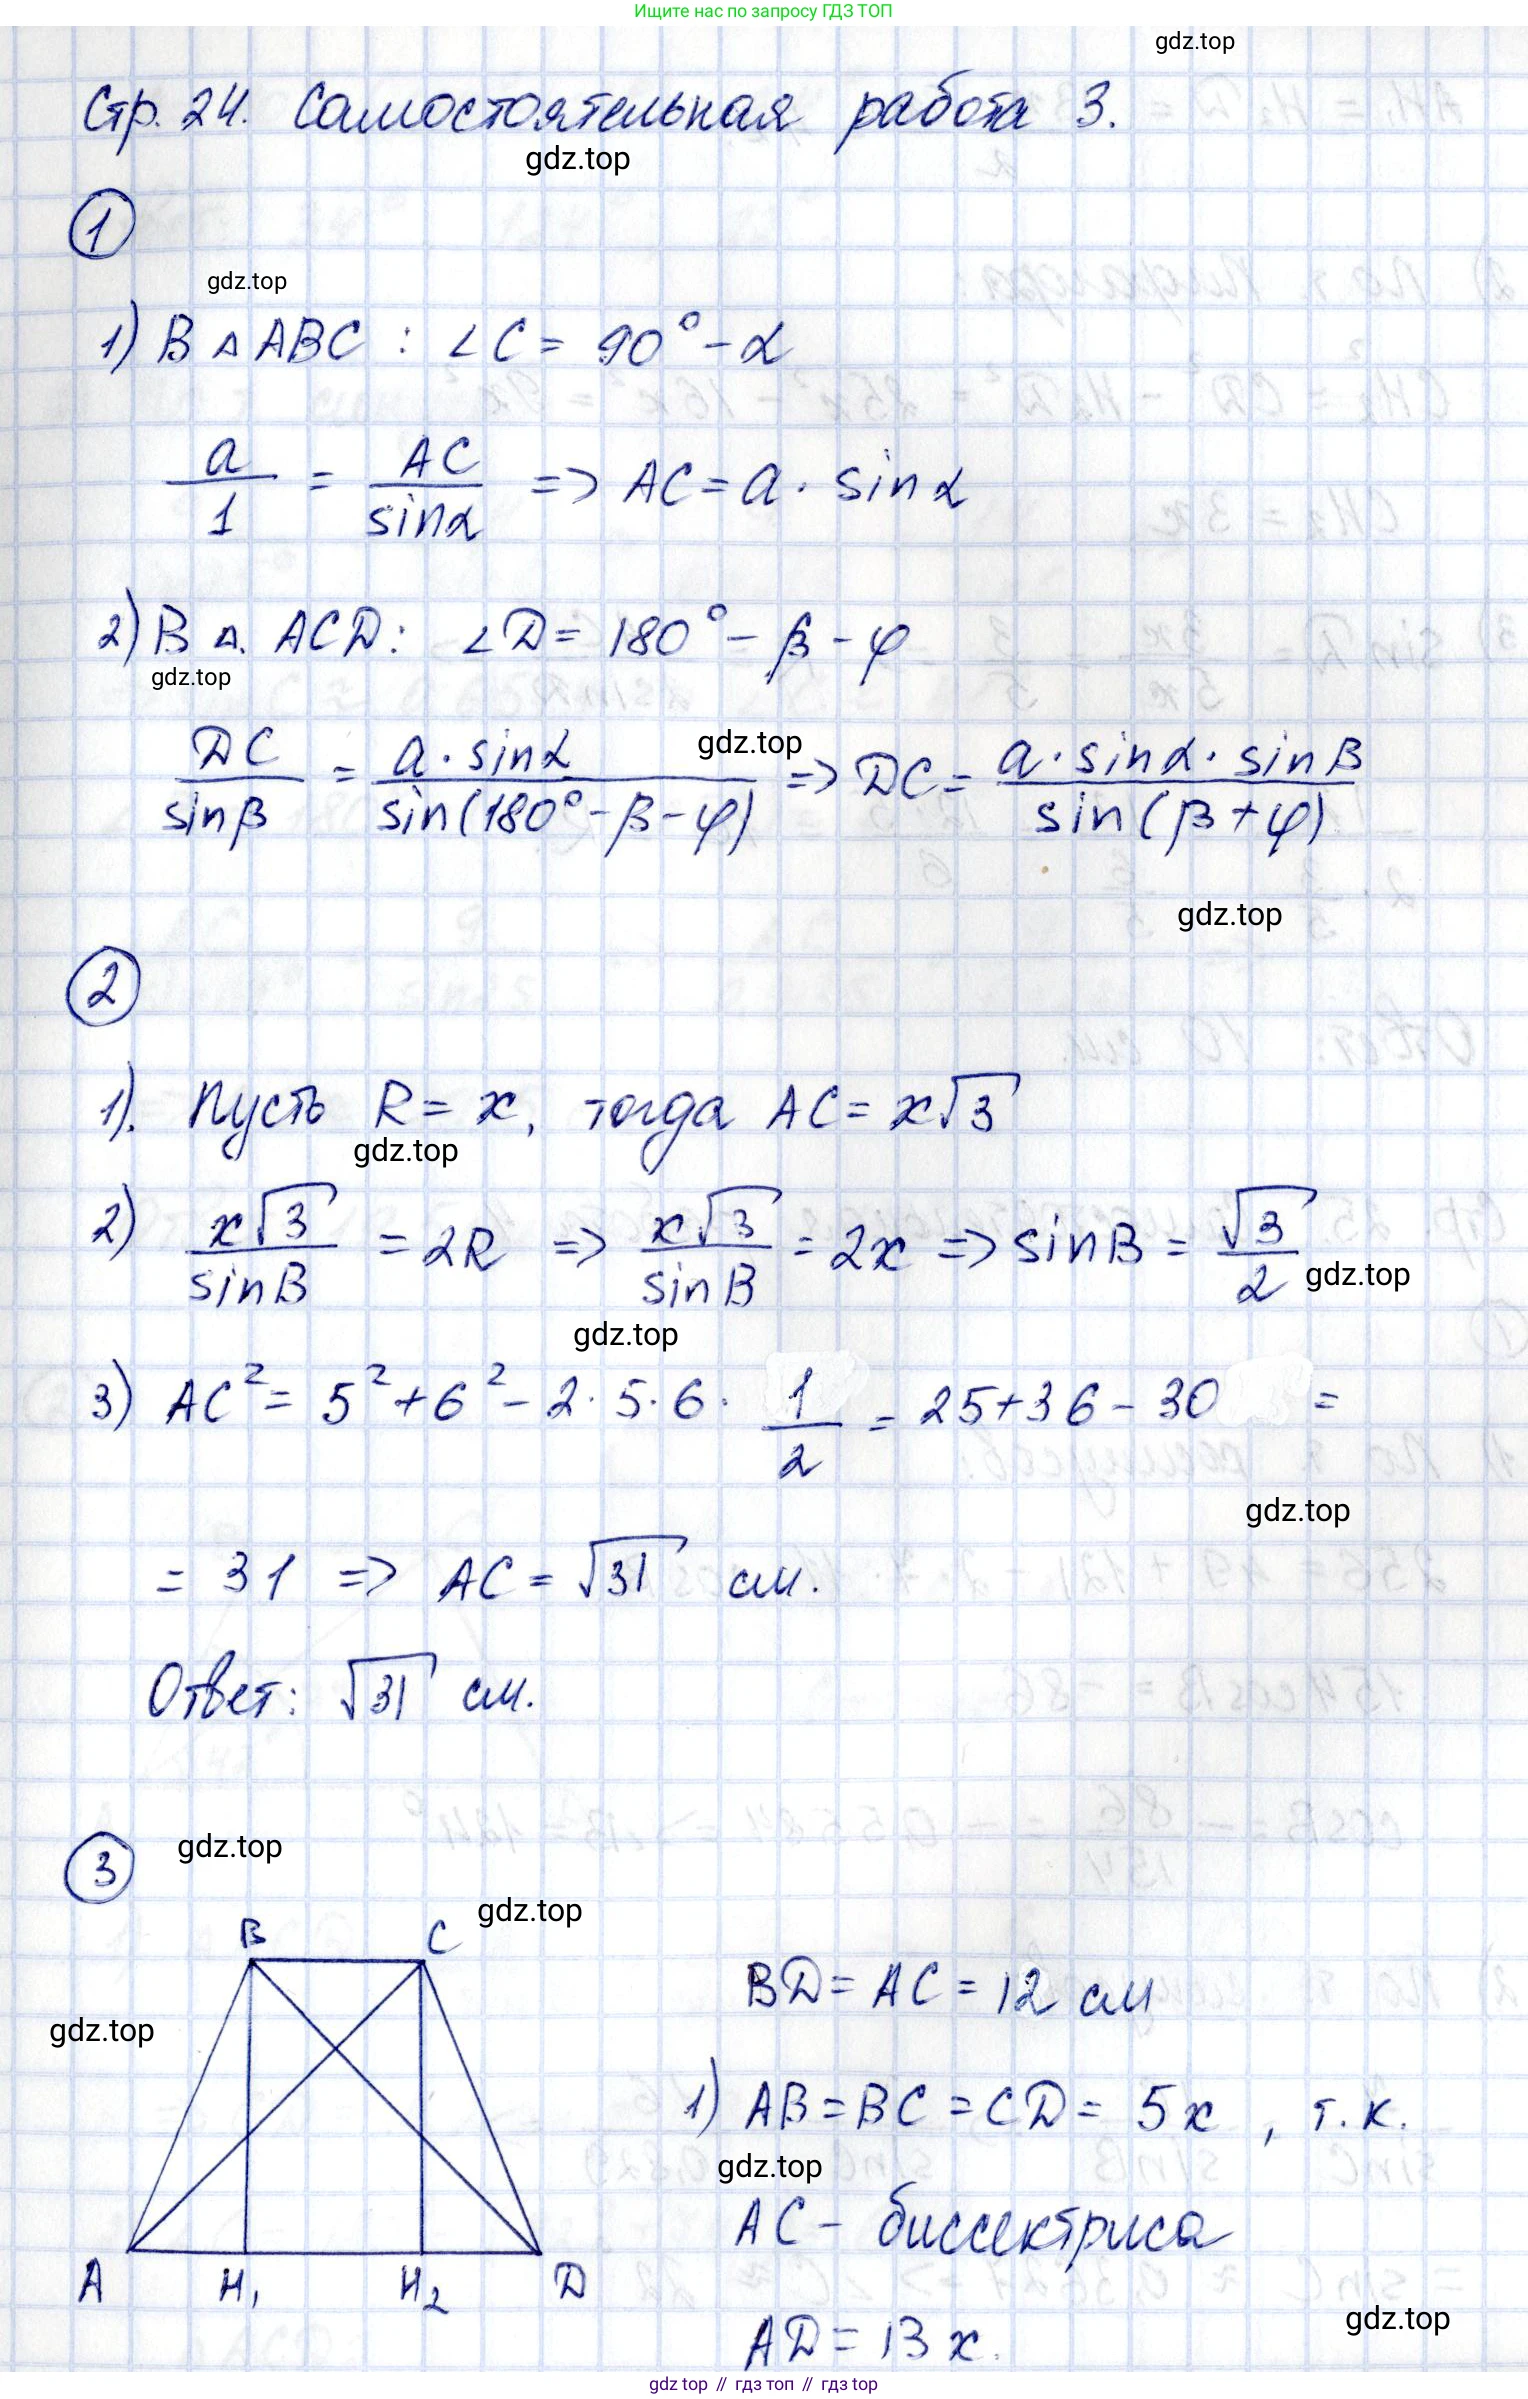 Ищите нас по запросу ГДЗ ТОП
gdz.top
Стр. 24. Самостоятельная работа 3.
gdz.top
1
gdz.top
1) В △ ABC : ∠C = 90° - α
a/1 = AC/sinα => AC = a · sinα
2) В △. ACD: ∠D = 180° - β - φ
gdz.top
DC/sinβ = a · sinα/sin(180° - β - φ) => DC = a · sinα · sinβ/sin(β + φ)
gdz.top
gdz.top
2
1). Пусть R = x, тогда AC = x√3
gdz.top
2) x√3/sinB = 2R => x√3/sinB = 2x => sinB = √3/2
gdz.top
gdz.top
3) AC² = 5² + 6² - 2 · 5 · 6 · 1/2 = 25 + 36 - 30 =
gdz.top
= 31 => AC = √31 см.
Ответ: √31 см.
gdz.top
3
gdz.top
B C
BD = AC = 12 см
gdz.top
1) AB = BC = CD = 5x , т.к.
gdz.top
AC - биссектриса
A H₁ H₂ D
gdz.top
AD = 13x.
gdz top // гдз топ // gdz top